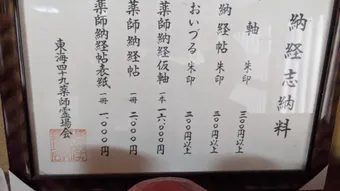 納経志納料
軸 朱印 三〇〇円以上
納経帖 朱印 二〇〇円以上
おいづる 朱印 二〇〇円以上
薬師納経仮軸 一本 一六、〇〇〇円
薬師納経帖 一冊 二、〇〇〇円
薬師納経帖表紙 一冊 一、〇〇〇円
東海四十九薬師霊場会